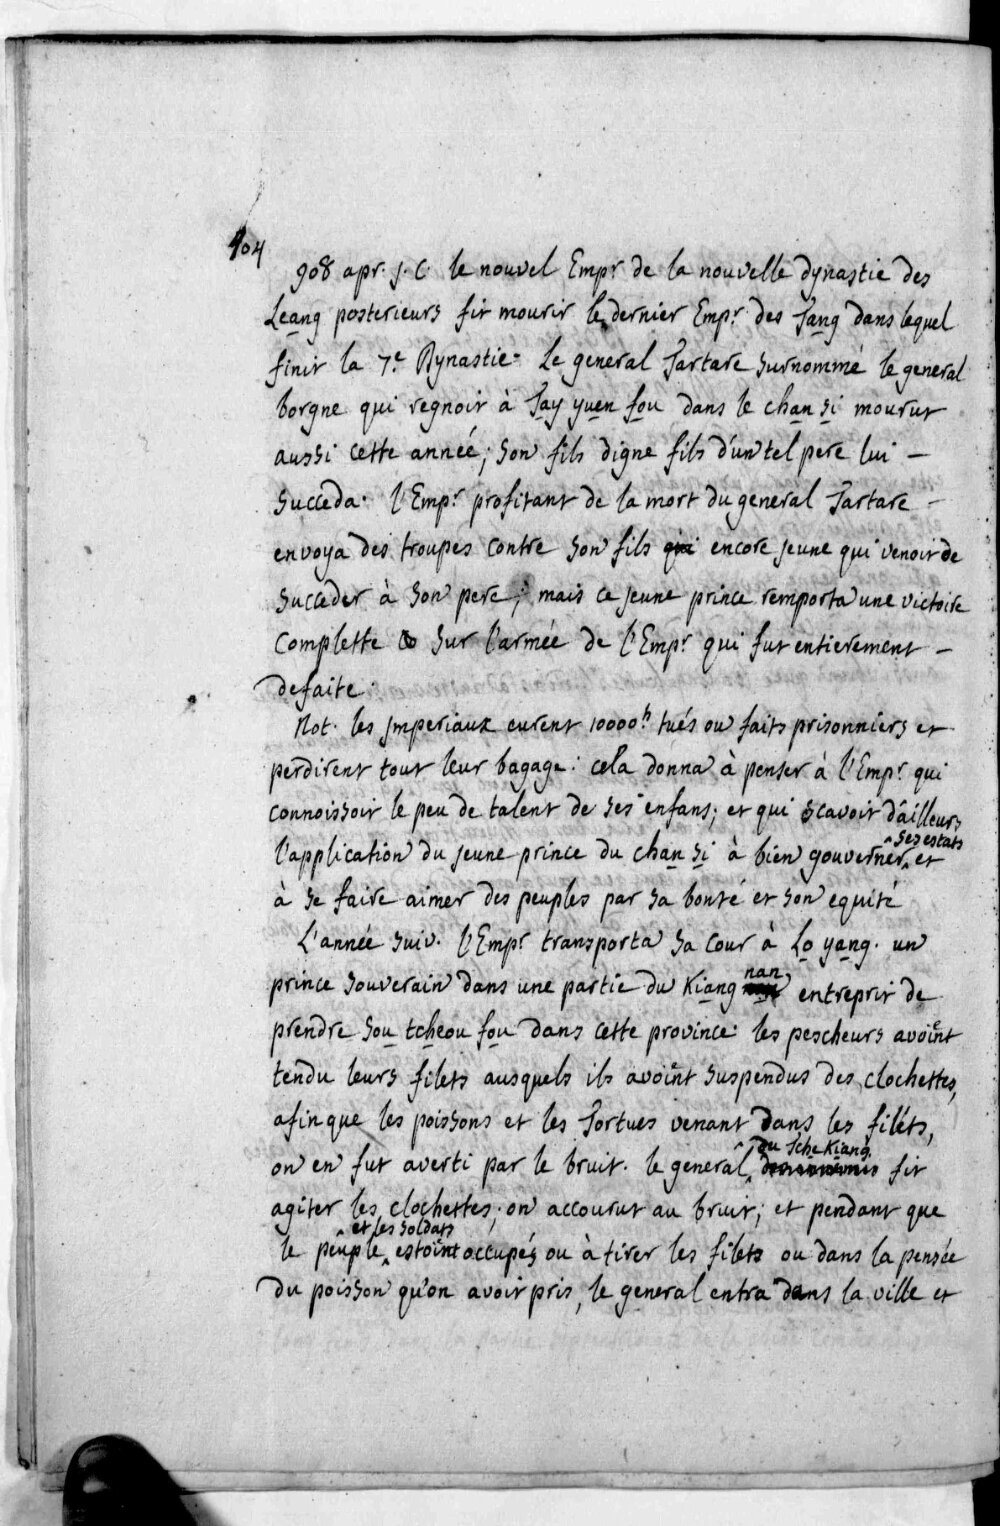 104
908 apr. J. C. le nouvel Empr de la nouvelle dynastie des
Leang posterieurs fit mourir le dernier Empr des Tang dans lequel
finit la 7e Dynastie. Le general Tartare surnommé le general
borgne qui regnoit à Tay yuen fou dans le chan si mourut
aussi cette année; son fils digne fils d'un tel pere lui –
succeda. l'Empr profitant de la mort du general Tartare –
envoya des troupes contre son fils qui encore jeune qui venoit de
succeder à son pere; mais ce jeune prince remporta une victoire
complette sur l'armée de l'Empr qui fut entierement –
defaite.
Not. les Imperiaux eurent 10000h tués ou faits prisonniers et
perdirent tout leur bagage: cela donna à penser à l'Empr qui
connoissoit le peu de talent de ses enfans; et qui scavoit d'ailleurs
l'application du jeune prince du chan si à bien gouverner ses estats et
à se faire aimer des peuples par sa bonté et son equité
L'année suiv. l'Empr transporta sa cour à Lo yang. un
prince souverain dans une partie du Kiang nan entreprit de
prendre Sou tcheou fou dans cette province: les pescheurs avoient
tendu leurs filets ausquels ils avoient suspendus des clochettes,
afin que les poissons et les Tortues venant dans les filéts,
on en fut averti par le bruit. le general du Tche Kiang fit
agiter les clochettes; on accourut au bruit; et pendant que
le peuple et les soldats estoient occupés ou à tirer les filets ou dans la pensée
du poisson qu'on avoit pris, le general entra dans la ville et